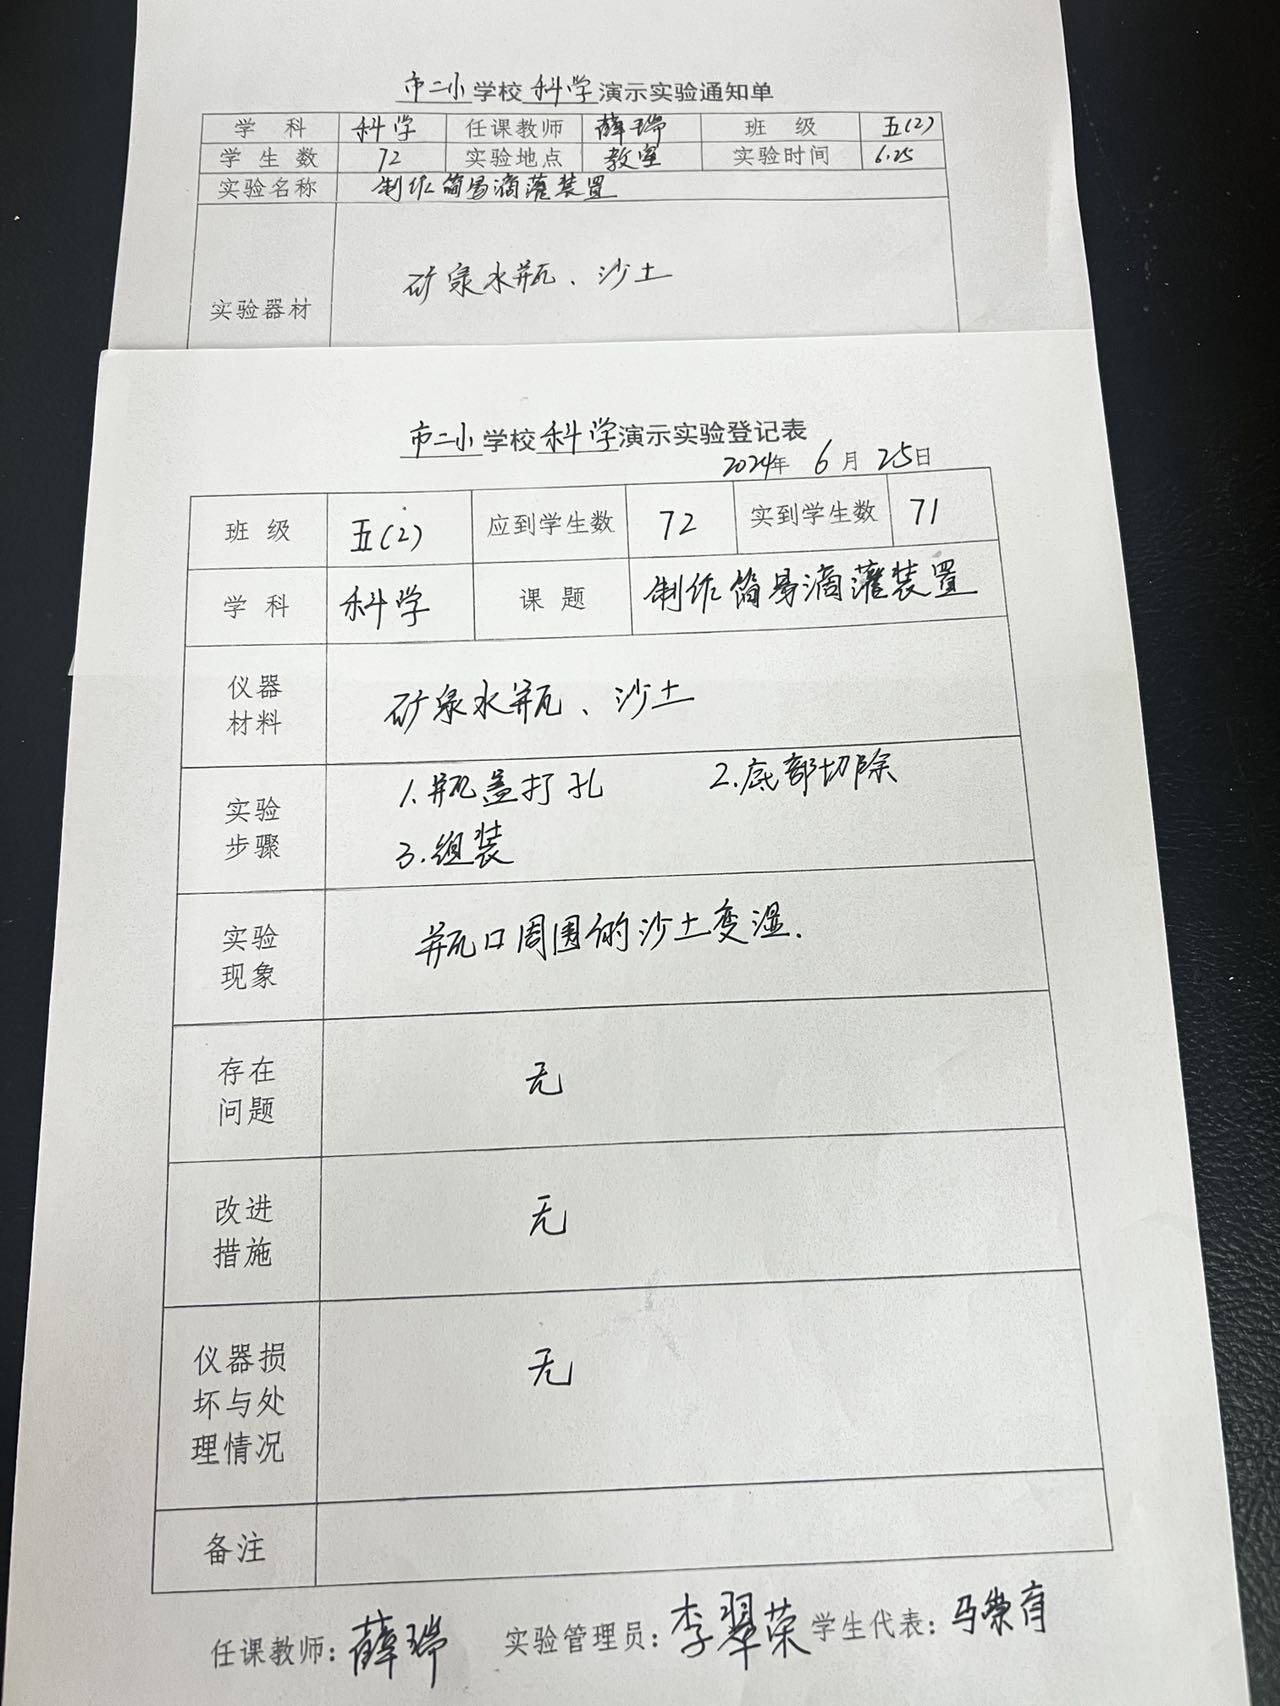 市二小学校科学演示实验通知单
学科 科学 任课教师 薛瑞 班级 五(2)
学生数 72 实验地点 教室 实验时间 6.25
实验名称 制作简易滴灌装置
实验器材 矿泉水瓶、沙土
市二小学校科学演示实验登记表
2024年 6月 25日
班级 五(2) 应到学生数 72 实到学生数 71
学科 科学 课题 制作简易滴灌装置
仪器
材料
矿泉水瓶、沙土
实验
步骤
1.瓶盖打孔 2.底部切除
3.组装
实验
现象
瓶口周围的沙土变湿.
存在
问题
无
改进
措施
无
仪器损
坏与处
理情况
无
备注
任课教师：薛瑞 实验管理员：李翠荣 学生代表：马荣育